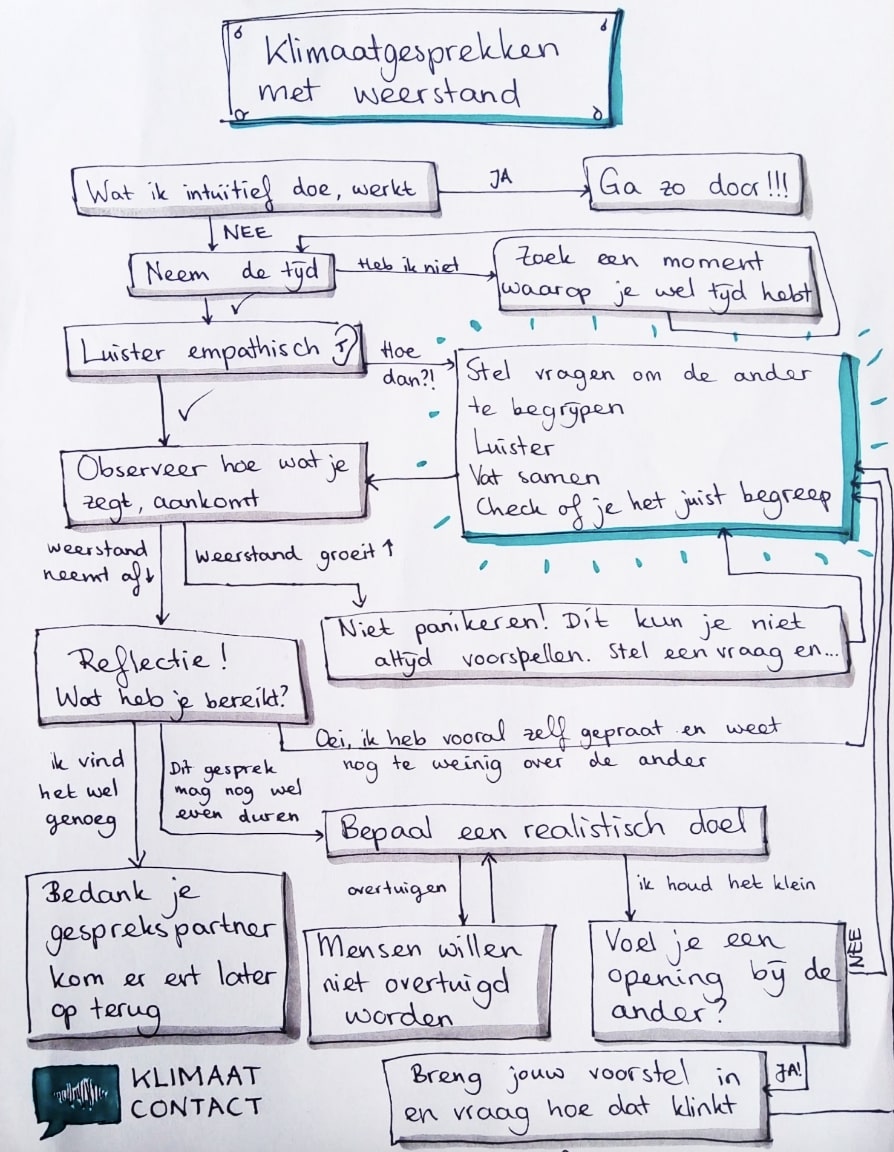 Klimaatgesprekken
met weerstand
Wat ik intuïtief doe, werkt
JA
Ga zo door!!!
NEE
Neem de tijd
Heb ik niet
Zoek een moment
waarop je wel tijd hebt
Luister empathisch
Hoe
dan?!
Stel vragen om de ander
te begrijpen
Luister
Vat samen
Check of je het juist begreep
Observeer hoe wat je
zegt, aankomt
weerstand
neemt af↓
weerstand groeit ↑
Niet panikeren! Dit kun je niet
altijd voorspellen. Stel een vraag en...
Reflectie!
Wat heb je bereikt?
Oei, ik heb vooral zelf gepraat en weet
nog te weinig over de ander
ik vind
het wel
genoeg
Dit gesprek
mag nog wel
even duren
Bepaal een realistisch doel
overtuigen
ik houd het klein
Bedank je
gesprekspartner
kom er evt later
op terug
Mensen willen
niet overtuigd
worden
Voel je een
opening bij de
ander?
NEE
JA!
Breng jouw voorstel in
en vraag hoe dat klinkt
KLIMAAT
CONTACT